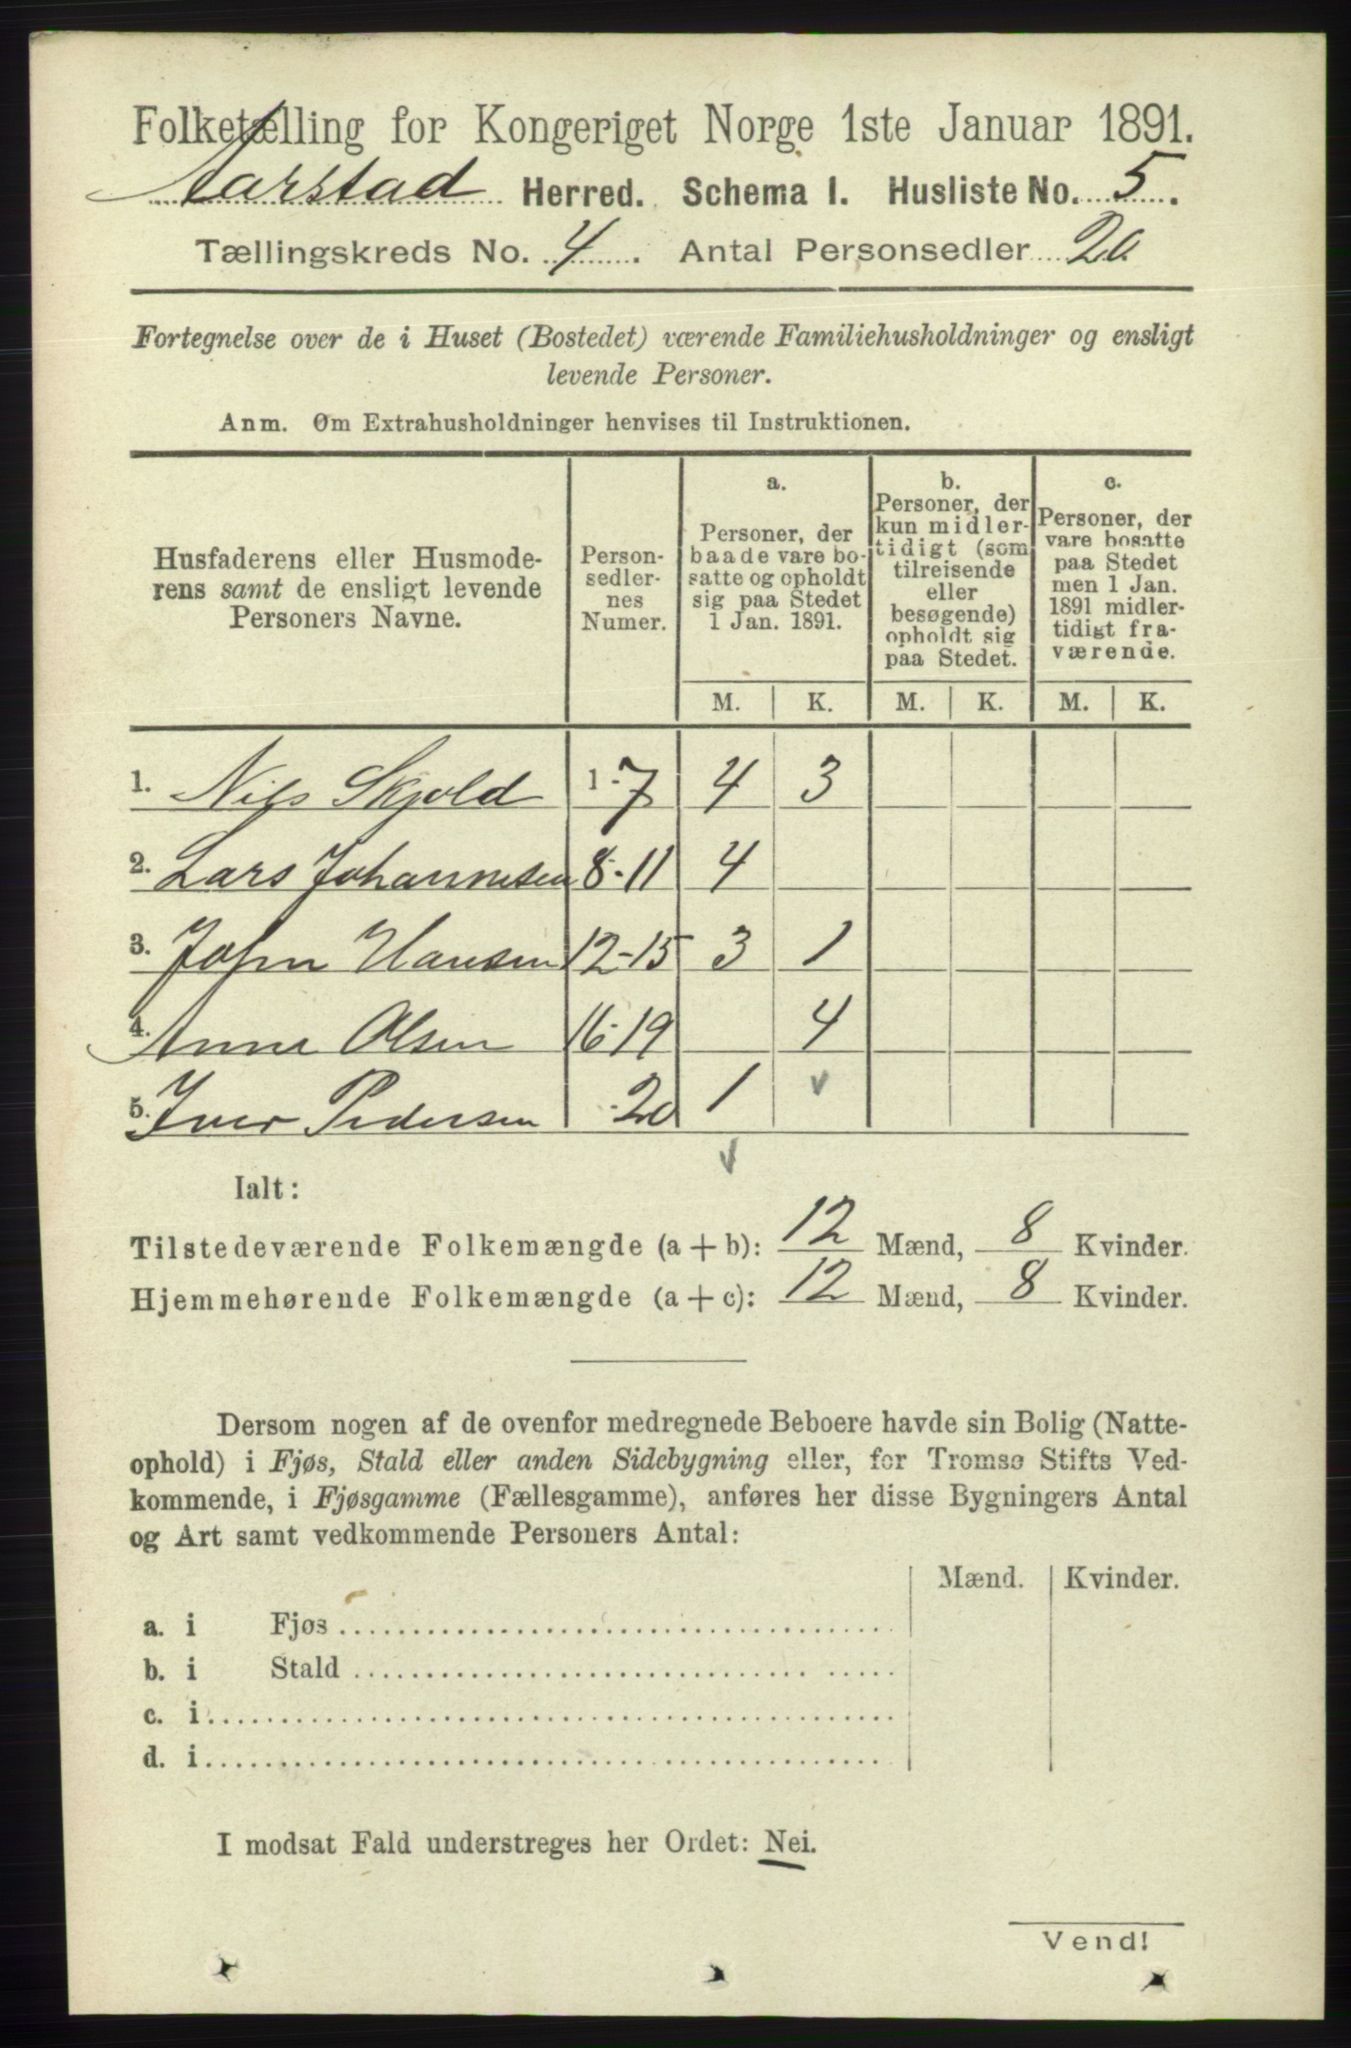 Folketælling for Kongeriget Norge 1ste Januar 1891.
Aarstad Herred. Schema I. Husliste No. 5.
Tællingskreds No. 4. Antal Personsedler 20.
Fortegnelse over de i Huset (Bostedet) værende Familiehusholdninger og ensligt
levende Personer.
Anm. Om Extrahusholdninger henvises til Instruktionen.
Husfaderens eller Husmode-
rens samt de ensligt levende
Personers Navne.
Person-
sedler-
nes
Numer.
a.
Personer, der
baade vare bo-
satte og opholdt
sig paa Stedet
1 Jan. 1891.
b.
Personer, der
kun midler-
tidigt (som
tilreisende
eller
besøgende)
opholdt sig
paa Stedet.
c.
Personer, der
vare bosatte
paa Stedet
men 1 Jan.
1891 midler-
tidigt fra-
værende.
M. K. M. K. M. K.
1. Nils Skjold 1-7 4 3
2. Lars Johannesen 8-11 4
3. John Hansen 12-15 3 1
4. Anna Olsen 16-19 4
5. Iver Pedersen 20 1
Ialt:
Tilstedeværende Folkemængde (a + b): 12 Mænd, 8 Kvinder.
Hjemmehørende Folkemængde (a + c): 12 Mænd, 8 Kvinder.
Dersom nogen af de ovenfor medregnede Beboere havde sin Bolig (Natte-
ophold) i Fjøs, Stald eller anden Sidebygning eller, for Tromsø Stifts Ved-
kommende, i Fjøsgamme (Fællesgamme), anføres her disse Bygningers Antal
og Art samt vedkommende Personers Antal:
Mænd. Kvinder.
a. i Fjøs
b. i Stald
c. i
d. i
I modsat Fald understreges her Ordet: Nei.
Vend!